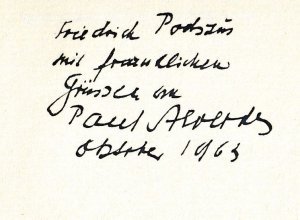 Friedrich Podszus
mit freundlichen
Grüssen von
Paul Alverdes
Oktober 1963